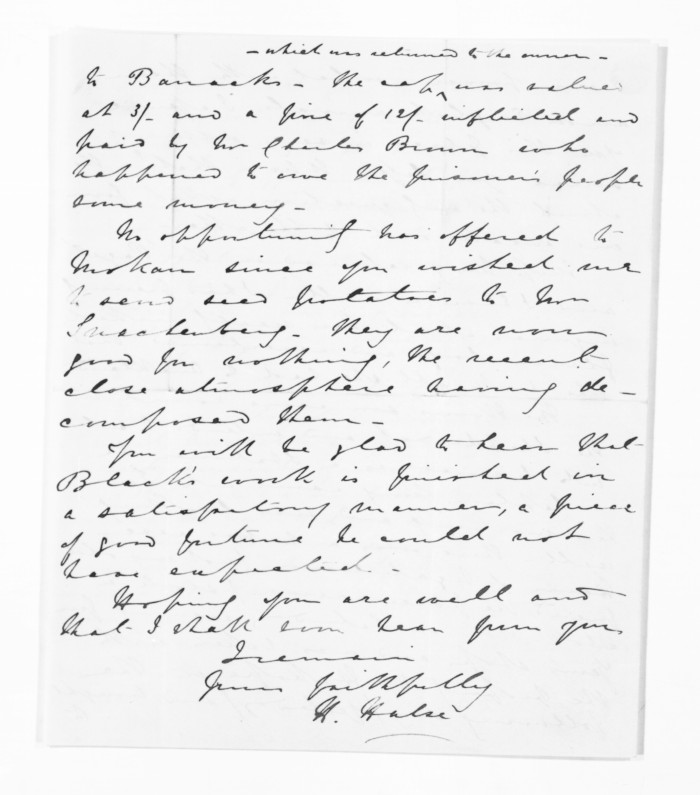 - which was returned to the owner -
to Barracks - the cap ^ was valued
at 3/- and a fine of 12/- inflicted and
paid by Mr Charles Brown who
happened to owe the prisoner's people
some money -
No opportunity has offered to
Mokau since you wished me
to send seed potatoes to Mr
Snachenberg - they are now
good for nothing, the recent
close atmosphere having de-
composed them -
You will be glad to hear that
Black's work is finished in
a satisfactory manner, a piece
of good fortune he could not
have expected -
Hoping you are well and
that I shall soon hear from you
I remain
Yours faithfully
H. Halse